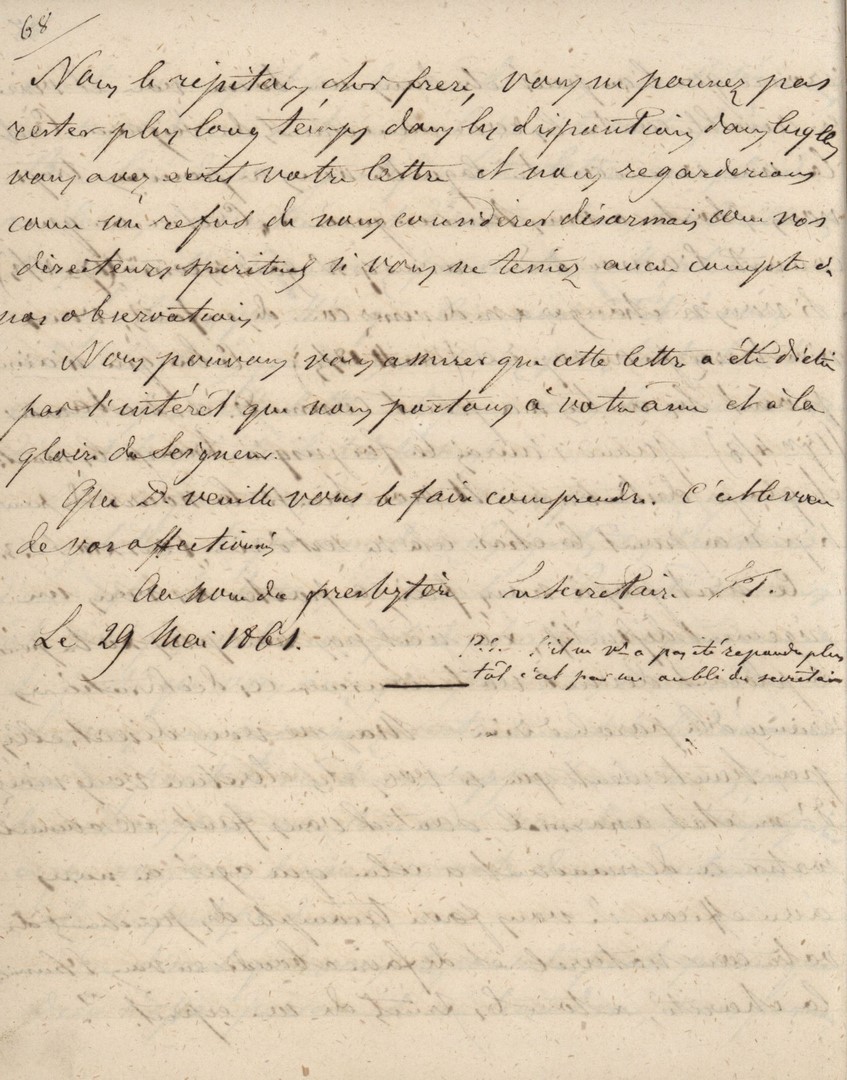 68
Nous le répétons, cher frère, vous ne pouvez pas
rester plus long temps dans les dispositions dans lesquelles
vous avez écrit votre lettre et nous regarderions
comme un refus de nous considérer désormais comme vos
directeurs spirituels si vous ne teniez aucun compte de
nos observations
Nous pouvons vous assurer que cette lettre a été dictée
par l'intérêt que nous portons à votre âme et à la
gloire du Seigneur.
Que D. veuille vous le faire comprendre. C'est le vœu
de vos affectionnés
Au nom du presbytère Le secrétaire
Le 29 Mai 1861.
P.S. S'il ne vs a pas été répondu plus
tôt c'est par un oubli du secrétaire